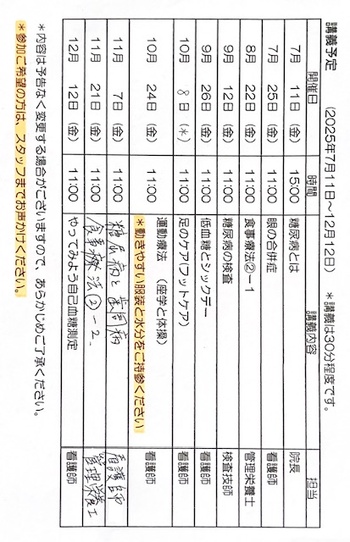 講義予定　(2025年7月11日～12月12日)　＊講義は30分程度です。
開催日　時間　講義内容　担当
7月　11日（金）　15:00　糖尿病とは　院長
7月　25日（金）　11:00　眼の合併症　看護師
8月　22日（金）　11:00　食事療法②－1　管理栄養士
9月　12日（金）　11:00　糖尿病の検査　検査技師
9月　26日（金）　11:00　低血糖とシックデー　看護師
10月　8日（水）　11:00　足のケア(フットケア)　看護師
10月　24日（金）　11:00　運動療法　（座学と体操）　看護師
＊動きやすい服装と水分をご持参ください
11月　7日（金）　11:00　糖尿病と歯周病　看護師
11月　21日（金）　11:00　食事療法②－2　管理栄養士
12月　12日（金）　11:00　やってみよう自己血糖測定　看護師
＊内容は予告なく変更する場合がございますので、あらかじめご了承ください。
＊参加ご希望の方は、スタッフまでお声がけください。